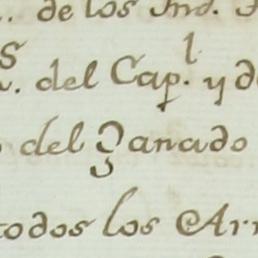 de los Ind.
del Cap.l y d
del Ganado
todos los Ar